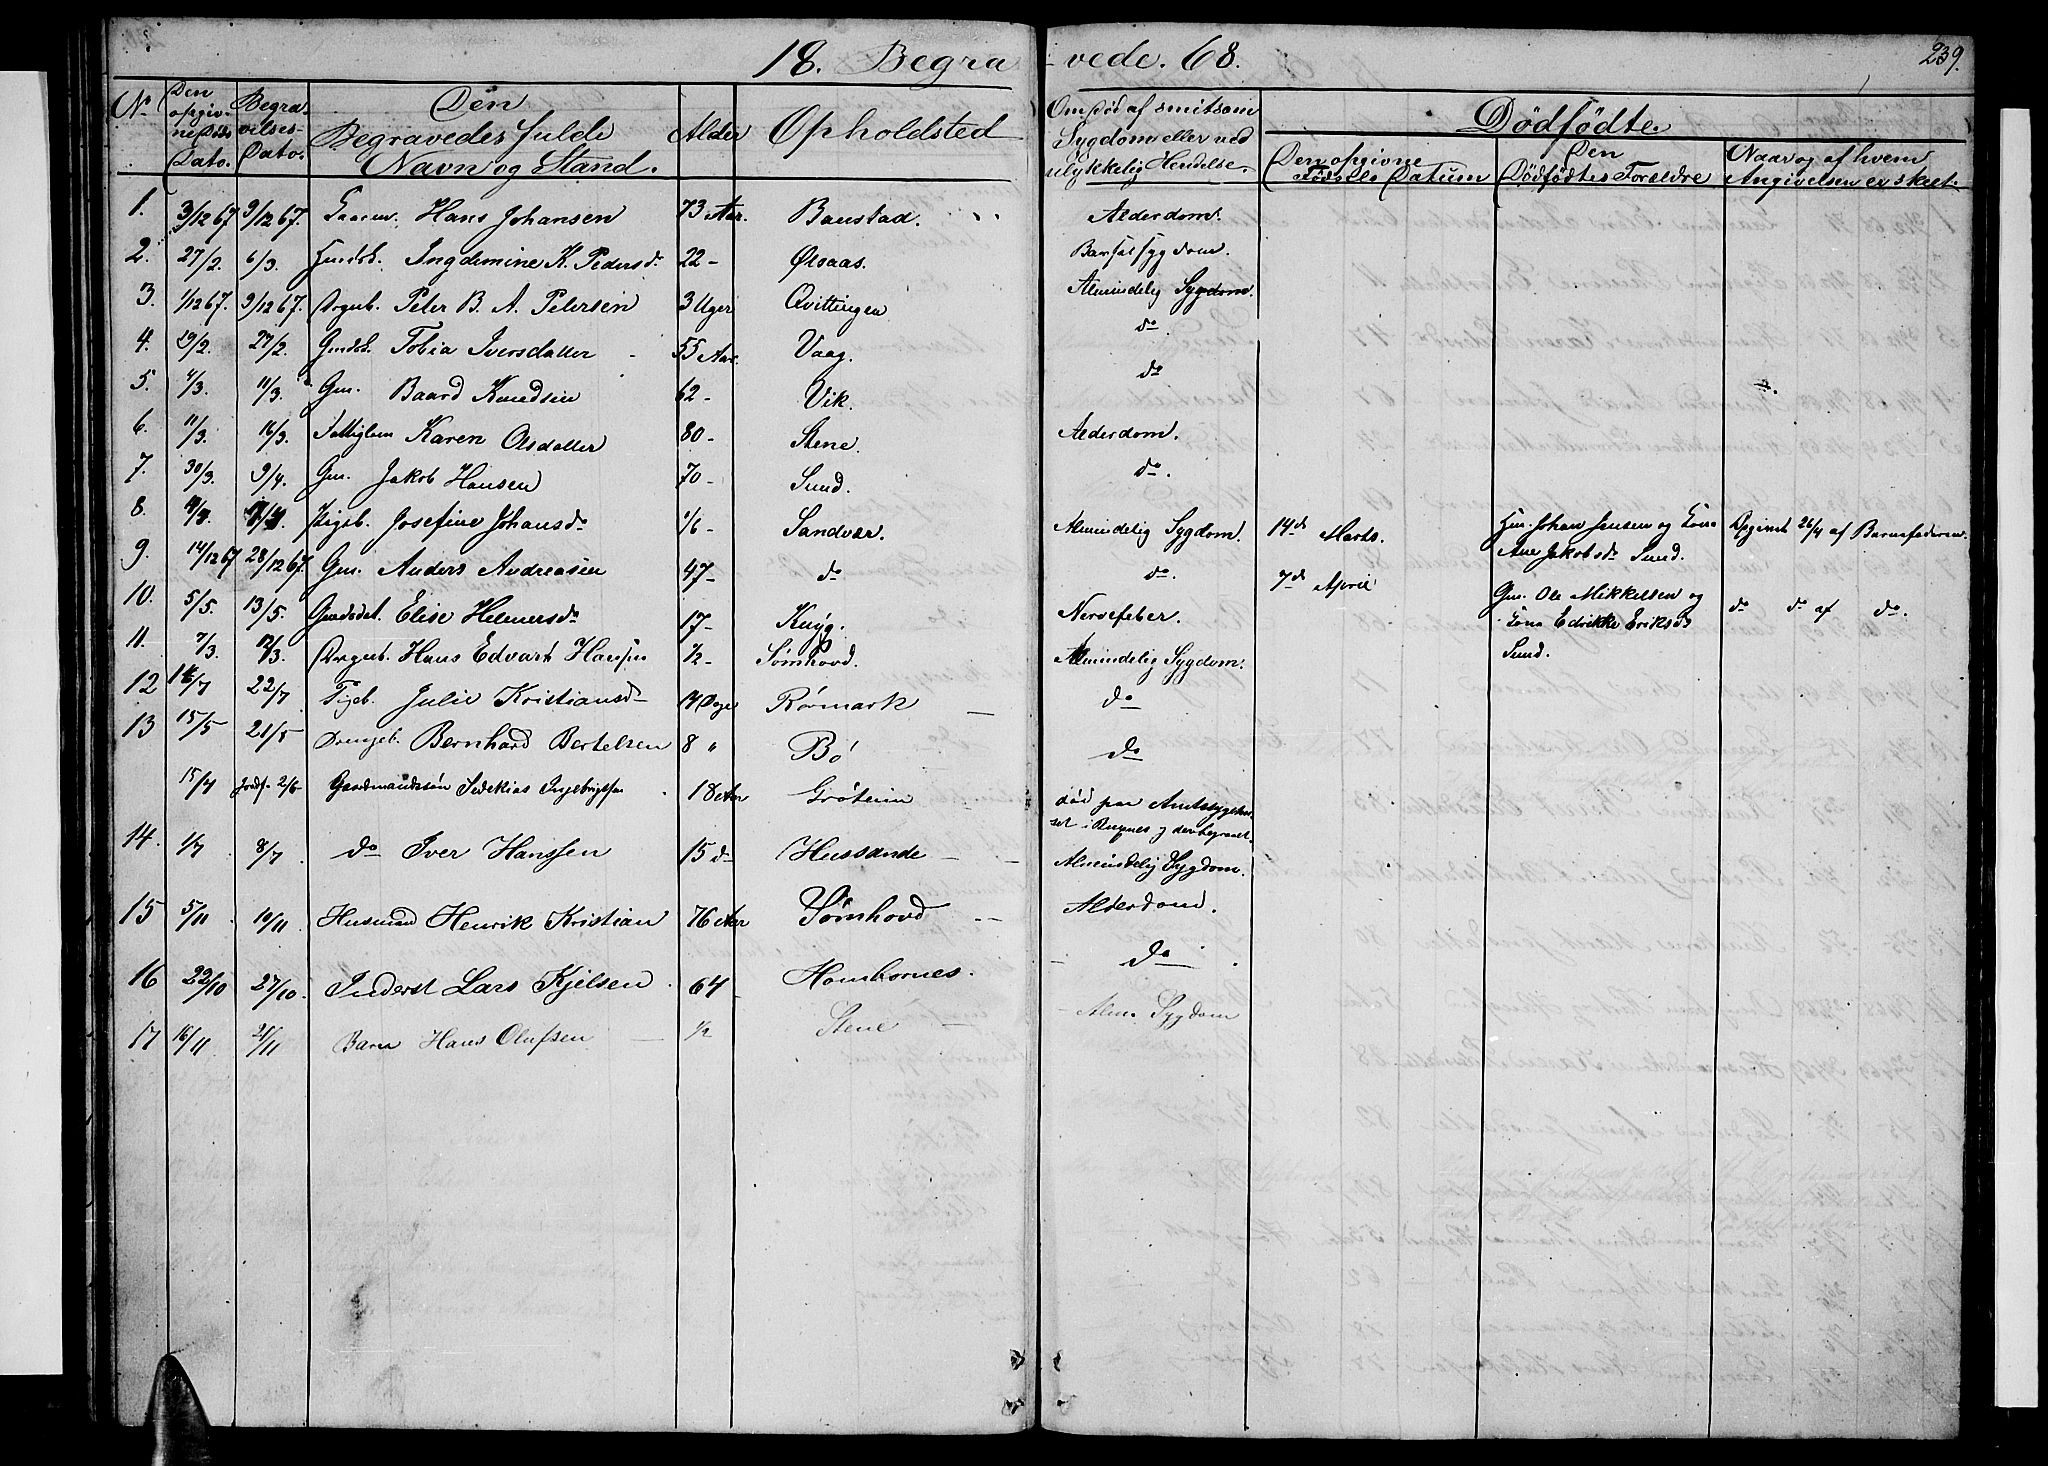 18. Begra vede. 68. 239.
No Den opgivne Døds Dato. Begravelses- Dato. Den Begravedes fulde Navn og Stand. Alder Opholdsted Om Død af smitsom Sygdom eller ved ulykkelig Hendelse. Dødfødte.
Den opgivne Fødsels Datum Den Dødfødtes Forældre Naar og af hvem Angivelsen er skeet.
1. 3/12 67 9/12 67. Hans Johansen 73 Aar. Baustad. Alderdom.
2. 27/2. 6/3. Ingdemine K. Pedersdr 22 - Ølsaas. Barselsygdom.
3. 1/12 67. 9/12 67. Drgnb. Peter B. A. Petersen 3 Uger Qvittingen Almindelig Sygdom.
4. 19/2. 27/2. Tobia Iversdatter - 55 Aar. Vaag. do
5. 4/3. 11/3. Gm. Baard Knudsen 62 - Vik. do
6. 11/3. 16/3. Fattiglem Karen Olsdatter 80 - Stene. Alderdom.
7. 30/3. 9/4. Gm. Jakob Hansen 70 - Sund. do.
8. Pigeb. Josefine Johansdr 1/6 - Sandvær. Almindelig Sygdom. 14de Marts. Johan Jensen og Kone Ane Jakobsdr Sund. Opgivet 26/4 af Barnefaderen.
9. 14/12 67 28/12 67. Gm. Anders Andreasen 47 - do do. 7de April Gm. Ole Mikkelsen og Kone Edrikke Eriksdr Sund. do do af do.
10. 5/5. 13/5. Elise Helmersdr 17 - Nervefeber.
11. 7/3. 12/3. Drgnb. Hans Edvart Hansen 1/2 - Sømhovd. Almindelig Sygdom.
12 22/7 Pigeb. Julie Kristiansdr 14 Dage Rørmark - do
13 15/5 21/5 Drengeb. Bernhard Bertelsen 8 " Bø do
15/4 Jordf. 2/6 - Gaardmandssøn Sedekias Ingebrigtsen 18 Aar Grøteim død paa Amtssygehuset i og der begravet.
14. 1/7 8/7 do Iver Hanssen 15 do Hussande - Almindelig Sygdom.
15 5/11 10/11 Husmand Henrik Kristian 76 Aar Sømhovd - Alderdom.
16 22/10 27/10 Inderst Lars Kjelsen 64 - Homhornes. do
17 16/11 21/11 Barn Hans Olufsen 1/2 Stene - Alm. Sygdom